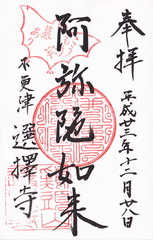 奉拝
平成廿三年十二月廿八日
阿弥陀如来
木更津
選擇寺